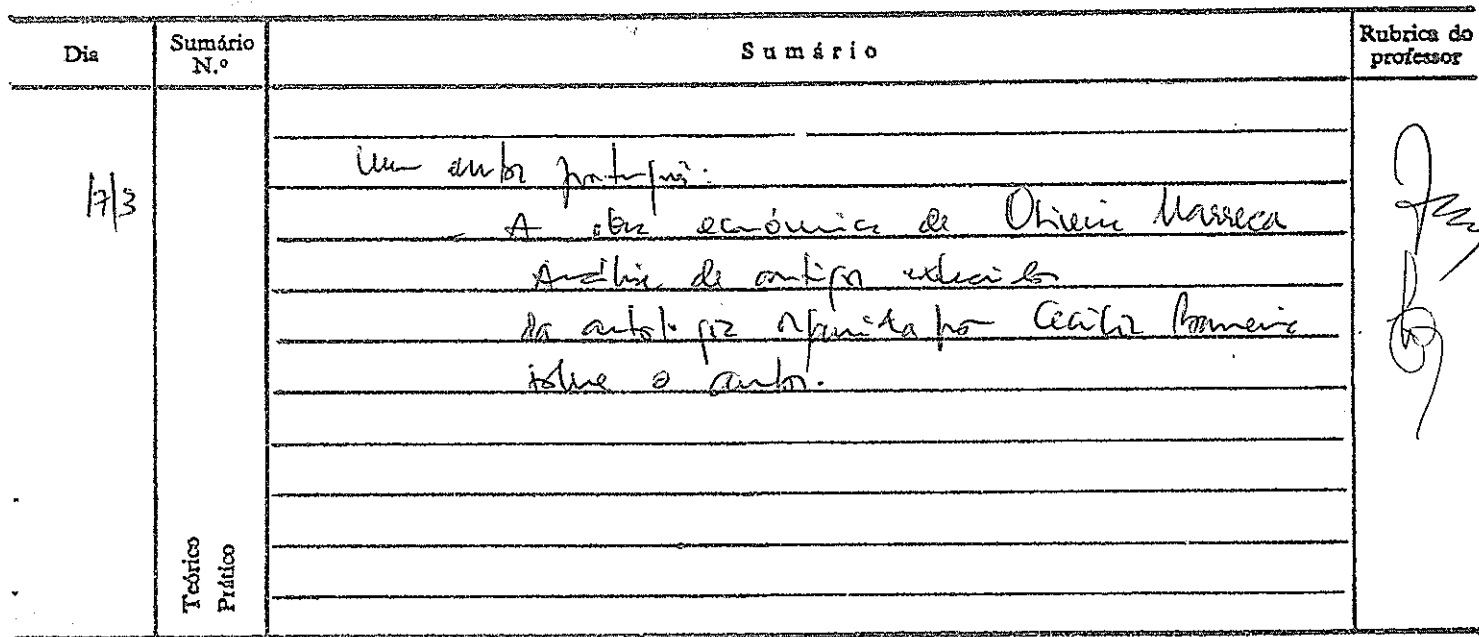 Dia
Sumário N.º
Sumário
Rubrica do professor
17/3
Um autor português:
- A obra económica de Oliveira Marreca
Análise de artigos extraídos
da antologia organizada por Cecília Barreira
sobre o autor.
Teórico
Prático